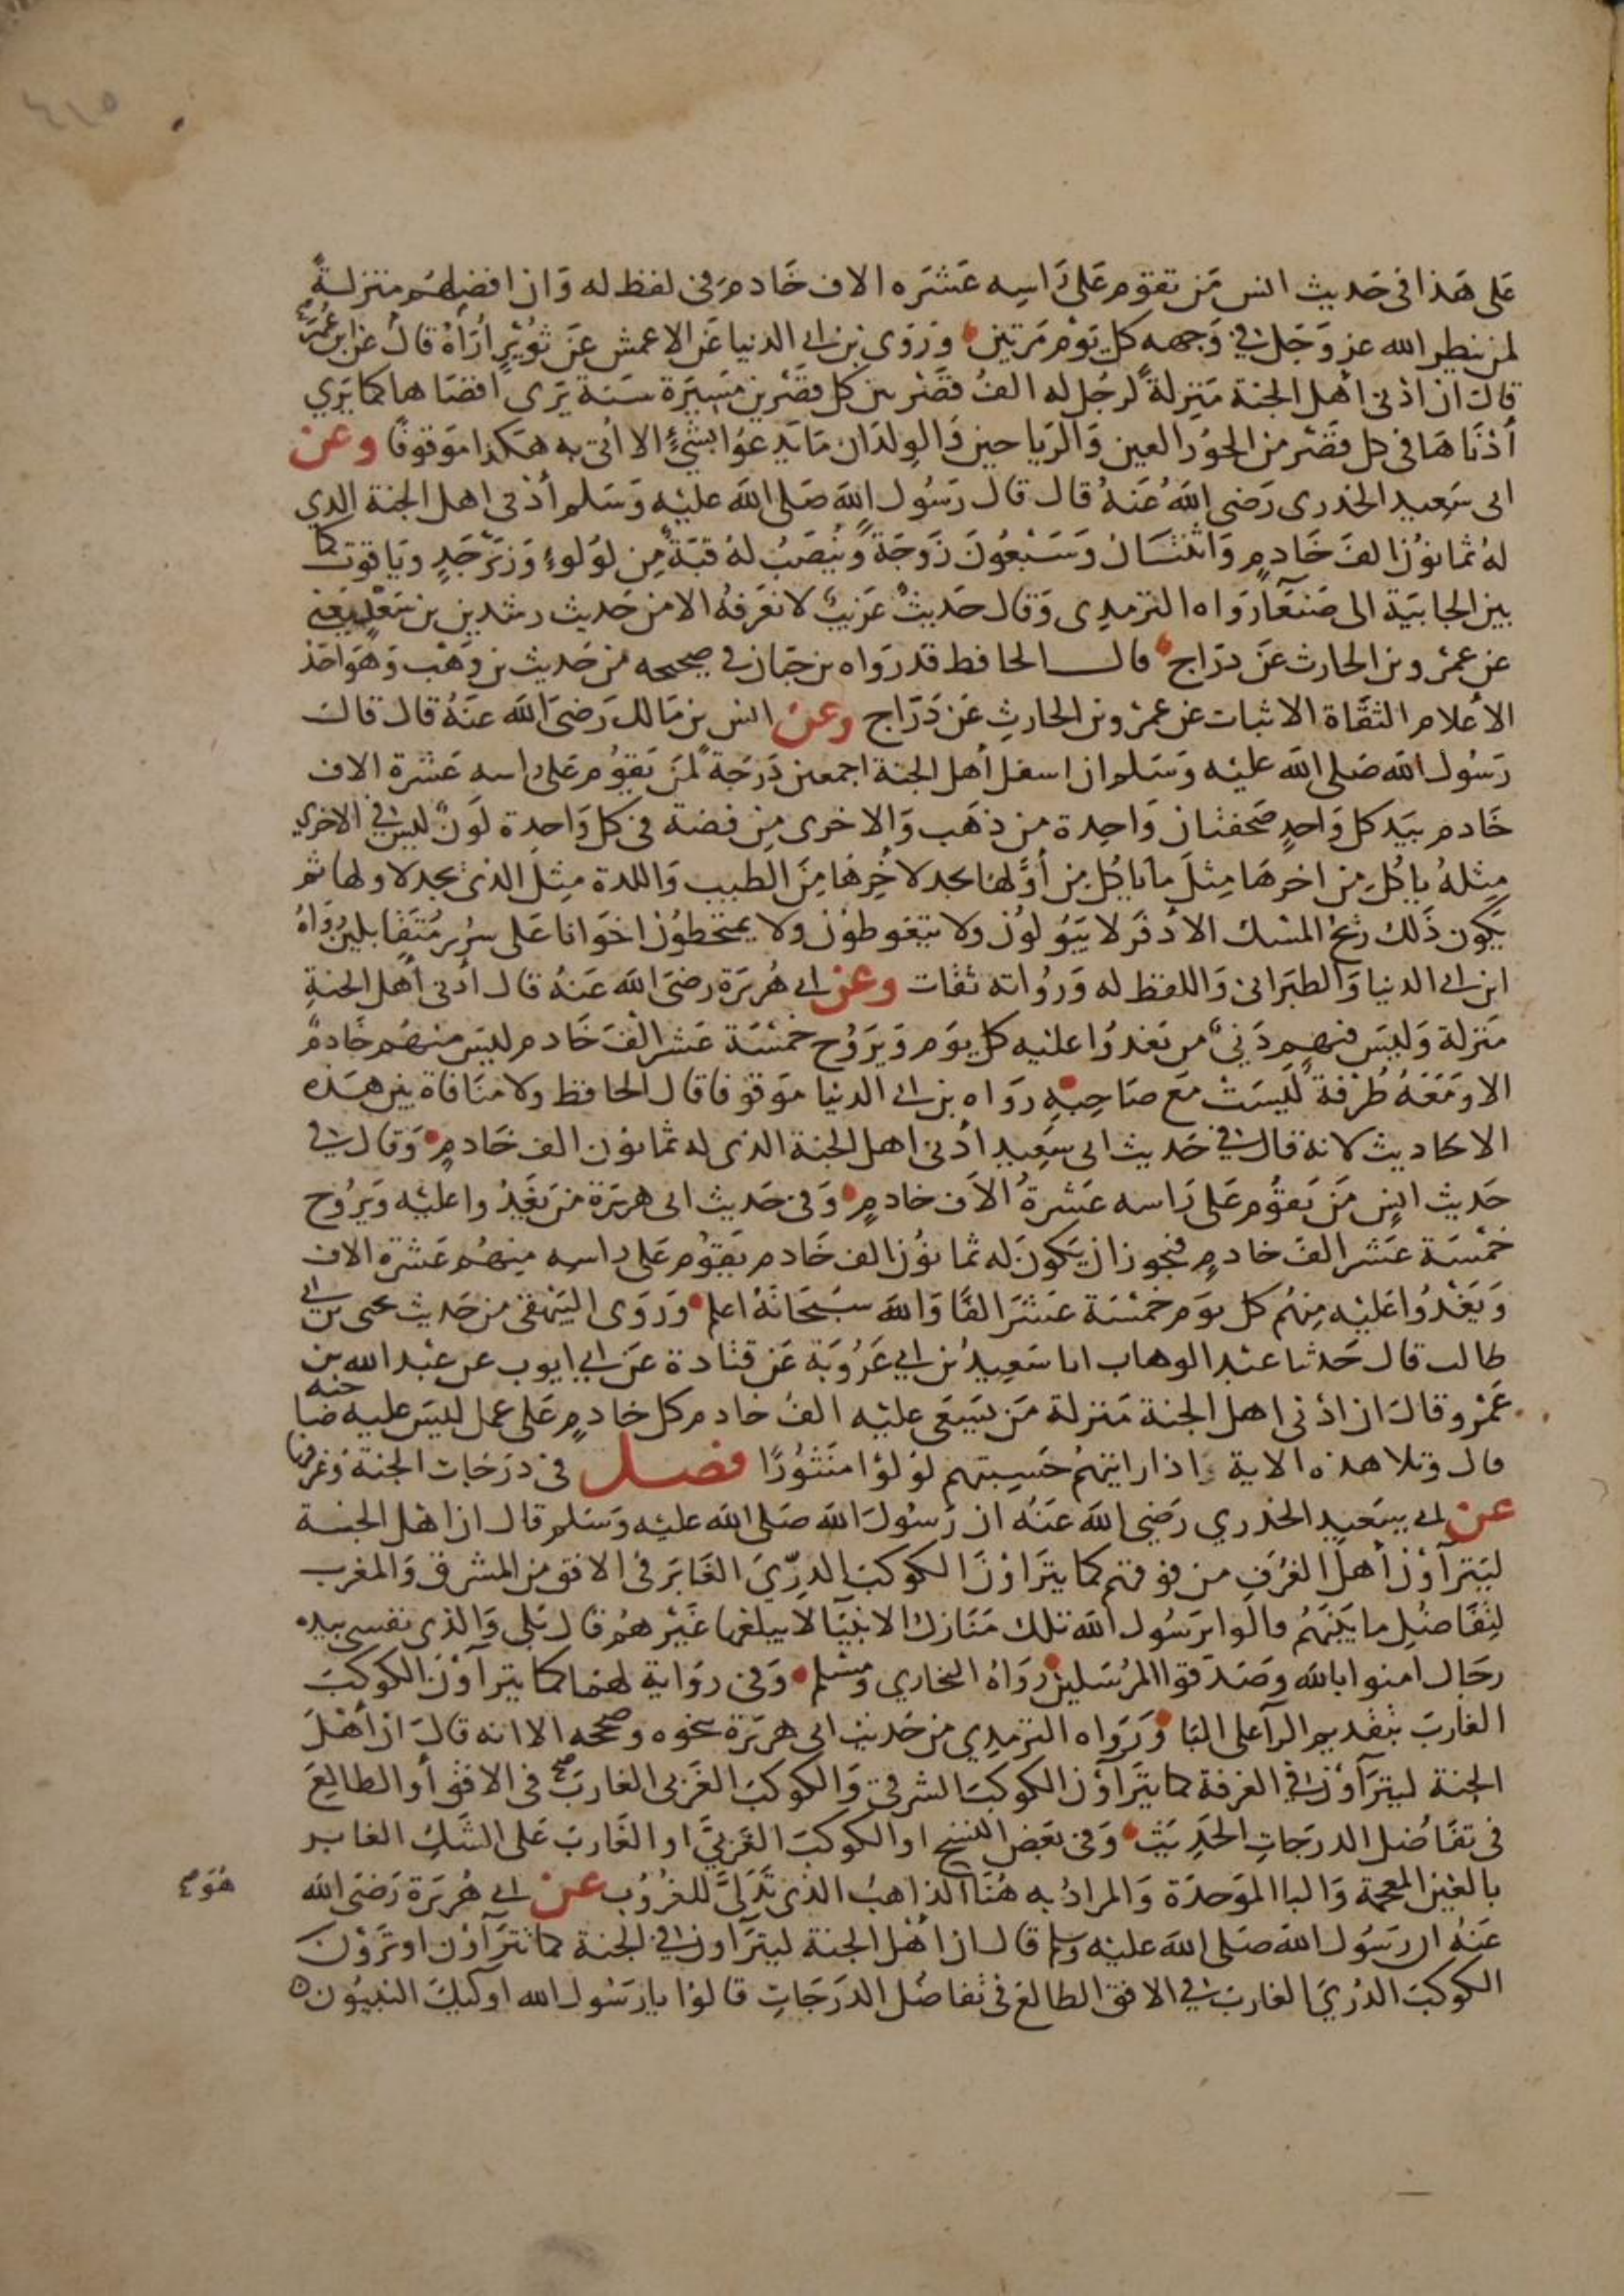 ٤١٥
على هذا في حديث انس من تقوم على راسه عشره الاف خادم وفي لفظ له وان افضلهم منزلةً
لمن ينظر الله عز وجل في وجهه كل يوم مرتين وروى بن ابي الدنيا عن الاعمش عن ثويرٍ أراهُ قال عن ابن عُمَر
قال ان ادنى اهل الجنة منزلةً لرجل له الف قصر بين كل قصرين مسيرة سنة يرى اقصاها كما يرى
أدناها في كل قصر من الحور العين والرياحين والولدان ما يدعوا بشيءٍ الا اُتى به هكذا موقوفًا وعن
ابي سعيد الخدرى رضي الله عنه قال قال رسول الله صلى الله عليه وسلم أدنى اهل الجنة الدي
له ثمانون الف خادمٍ واثنتان وسبعون زوجةً وينصب له قبةٌ من لولوءٍ وزبرجدٍ وياقوت كما
بين الجابية الى صنعآ رواه الترمدى وقال حديثٌ غريبٌ لا نعرفه الا من حديث رشدين بن سعدٍ يعني
عن عمرو بن الحارث عن دراج قال الحافظ قد رواه بن حبان في صحيحه من حديث بن وهب وهو احد
الأعلام الثقاة الاثبات عن عمرو بن الحارث عن دراج وعن انس بن مالك رضي الله عنه قال قال
رسول الله صلى الله عليه وسلم ان اسفل أهل الجنة اجمعين درجةً لمن يقوم على راسه عشرة الاف
خادم بيد كل واحدٍ صحفتان واحدة من ذهب والاخرى من فضة في كل واحدة لونٌ ليس في الاخرى
مثله ياكل من اخرها مثل ما ياكل من أولها يجد لاخرها من الطيب واللدة مثل الذي يجد لاولها ثم
يكون ذلك ريح المسك الأدفر لا يبولون ولا يتغوطون ولا يمتخطون اخوانا على سررٍ متقابلين رواه
ابن ابي الدنيا والطبراني واللفظ له ورواته ثقات وعن ابي هريرة رضي الله عنه قال أدنى أهل الجنة
منزلة وليس فيهم دنيٌ من يغدوا عليه كل يوم ويروح خمسة عشر الف خادم ليس منهم خادمٌ
الا ومعه طرفةٌ ليست مع صاحبه رواه بن ابي الدنيا موقوفا قال الحافظ ولا منافاة بين هذه
الاحاديث لانه قال في حديث ابي سعيد ادنى اهل الجنة الذي له ثمانون الف خادمٍ وقال في
حديث انسٍ من يقوم على راسه عشرةُ الاف خادمٍ وفي حديث ابي هريرة من يغدوا عليه ويروح
خمسة عشر الف خادمٍ فيجوز ان يكون له ثمانون الف خادم يقوم على راسه منهم عشرة الاف
ويغدوا عليه منهم كل يوم خمسة عشر الفًا والله سبحانه اعلم وروى البيهقي من حديث يحيى بن ابي
طالب قال حدثنا عبد الوهاب انا سعيد بن ابي عروبة عن قتادة عن ابي ايوب عن عبد الله بن
عمرو قال ان ادنى اهل الجنة منزلة من يسعى عليه الف خادم كل خادمٍ على عمل ليس عليه صاحبه
قال وتلا هذه الاية اذا رايتهم حسبتهم لؤلؤا منثورًا فصل في درجات الجنة وغرفها
عن ابي سعيد الخدري رضي الله عنه ان رسول الله صلى الله عليه وسلم قال ان اهل الجنة
ليترآون أهل الغرف من فوقهم كما يتراون الكوكب الدرّي الغابر في الافق من المشرق والمغرب
لتفاضل ما بينهم قالوا يرسول الله تلك منازل الانبيآ لا يبلغها غيرهم قال بلى والذى نفسي بيده
رجال امنوا بالله وصدقوا المرسلين رواه البخاري ومسلم وفي رواية لهما كما يترآون الكوكب
الغارب بتقديم الرآ على البا ورواه الترمدي من حديث ابي هريرة بنحوه وصححه الا انه قال ان أهل
الجنة ليترآون في الغرفة كما يترآون الكوكب الشرقي والكوكب الغربي الغارب في الافق أو الطالع
في تفاضل الدرجات الحديث وفي بعض النسخ او الكوكب الغربيّ او الغارب على الشك الغابر
بالغين المعجمة والبا الموحدة والمراد به هنا الذاهب الذي تدلى للغروب عن ابي هريرة رضي الله
هوم
عنه ان رسول الله صلى الله عليه وسلم قال ان أهل الجنة ليترآون في الجنة كما تترآون او ترون
الكوكب الدري الغارب في الافق الطالع في تفاضل الدرجات قالوا يا رسول الله اوليك النبيون